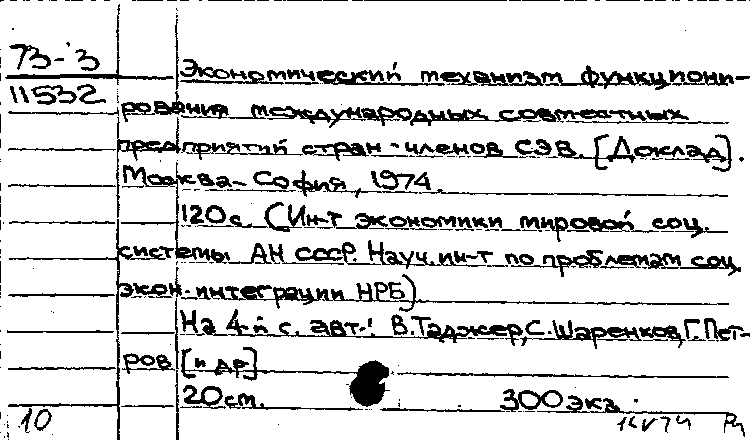 73-3
11532
Экономический механизм функциони-
рования международных совместных
предприятий стран-членов СЭВ. [Доклад].
Москва-София, 1974.
120с. (Ин-т экономики мировой соц.
системы АН СССР. Науч. ин-т по проблемам соц.
экон. интеграции НРБ)
На 4-й с. авт.: В.Таджер, С.Шаренков, Г.Пет-
ров [и др].
20см. 300экз.
10